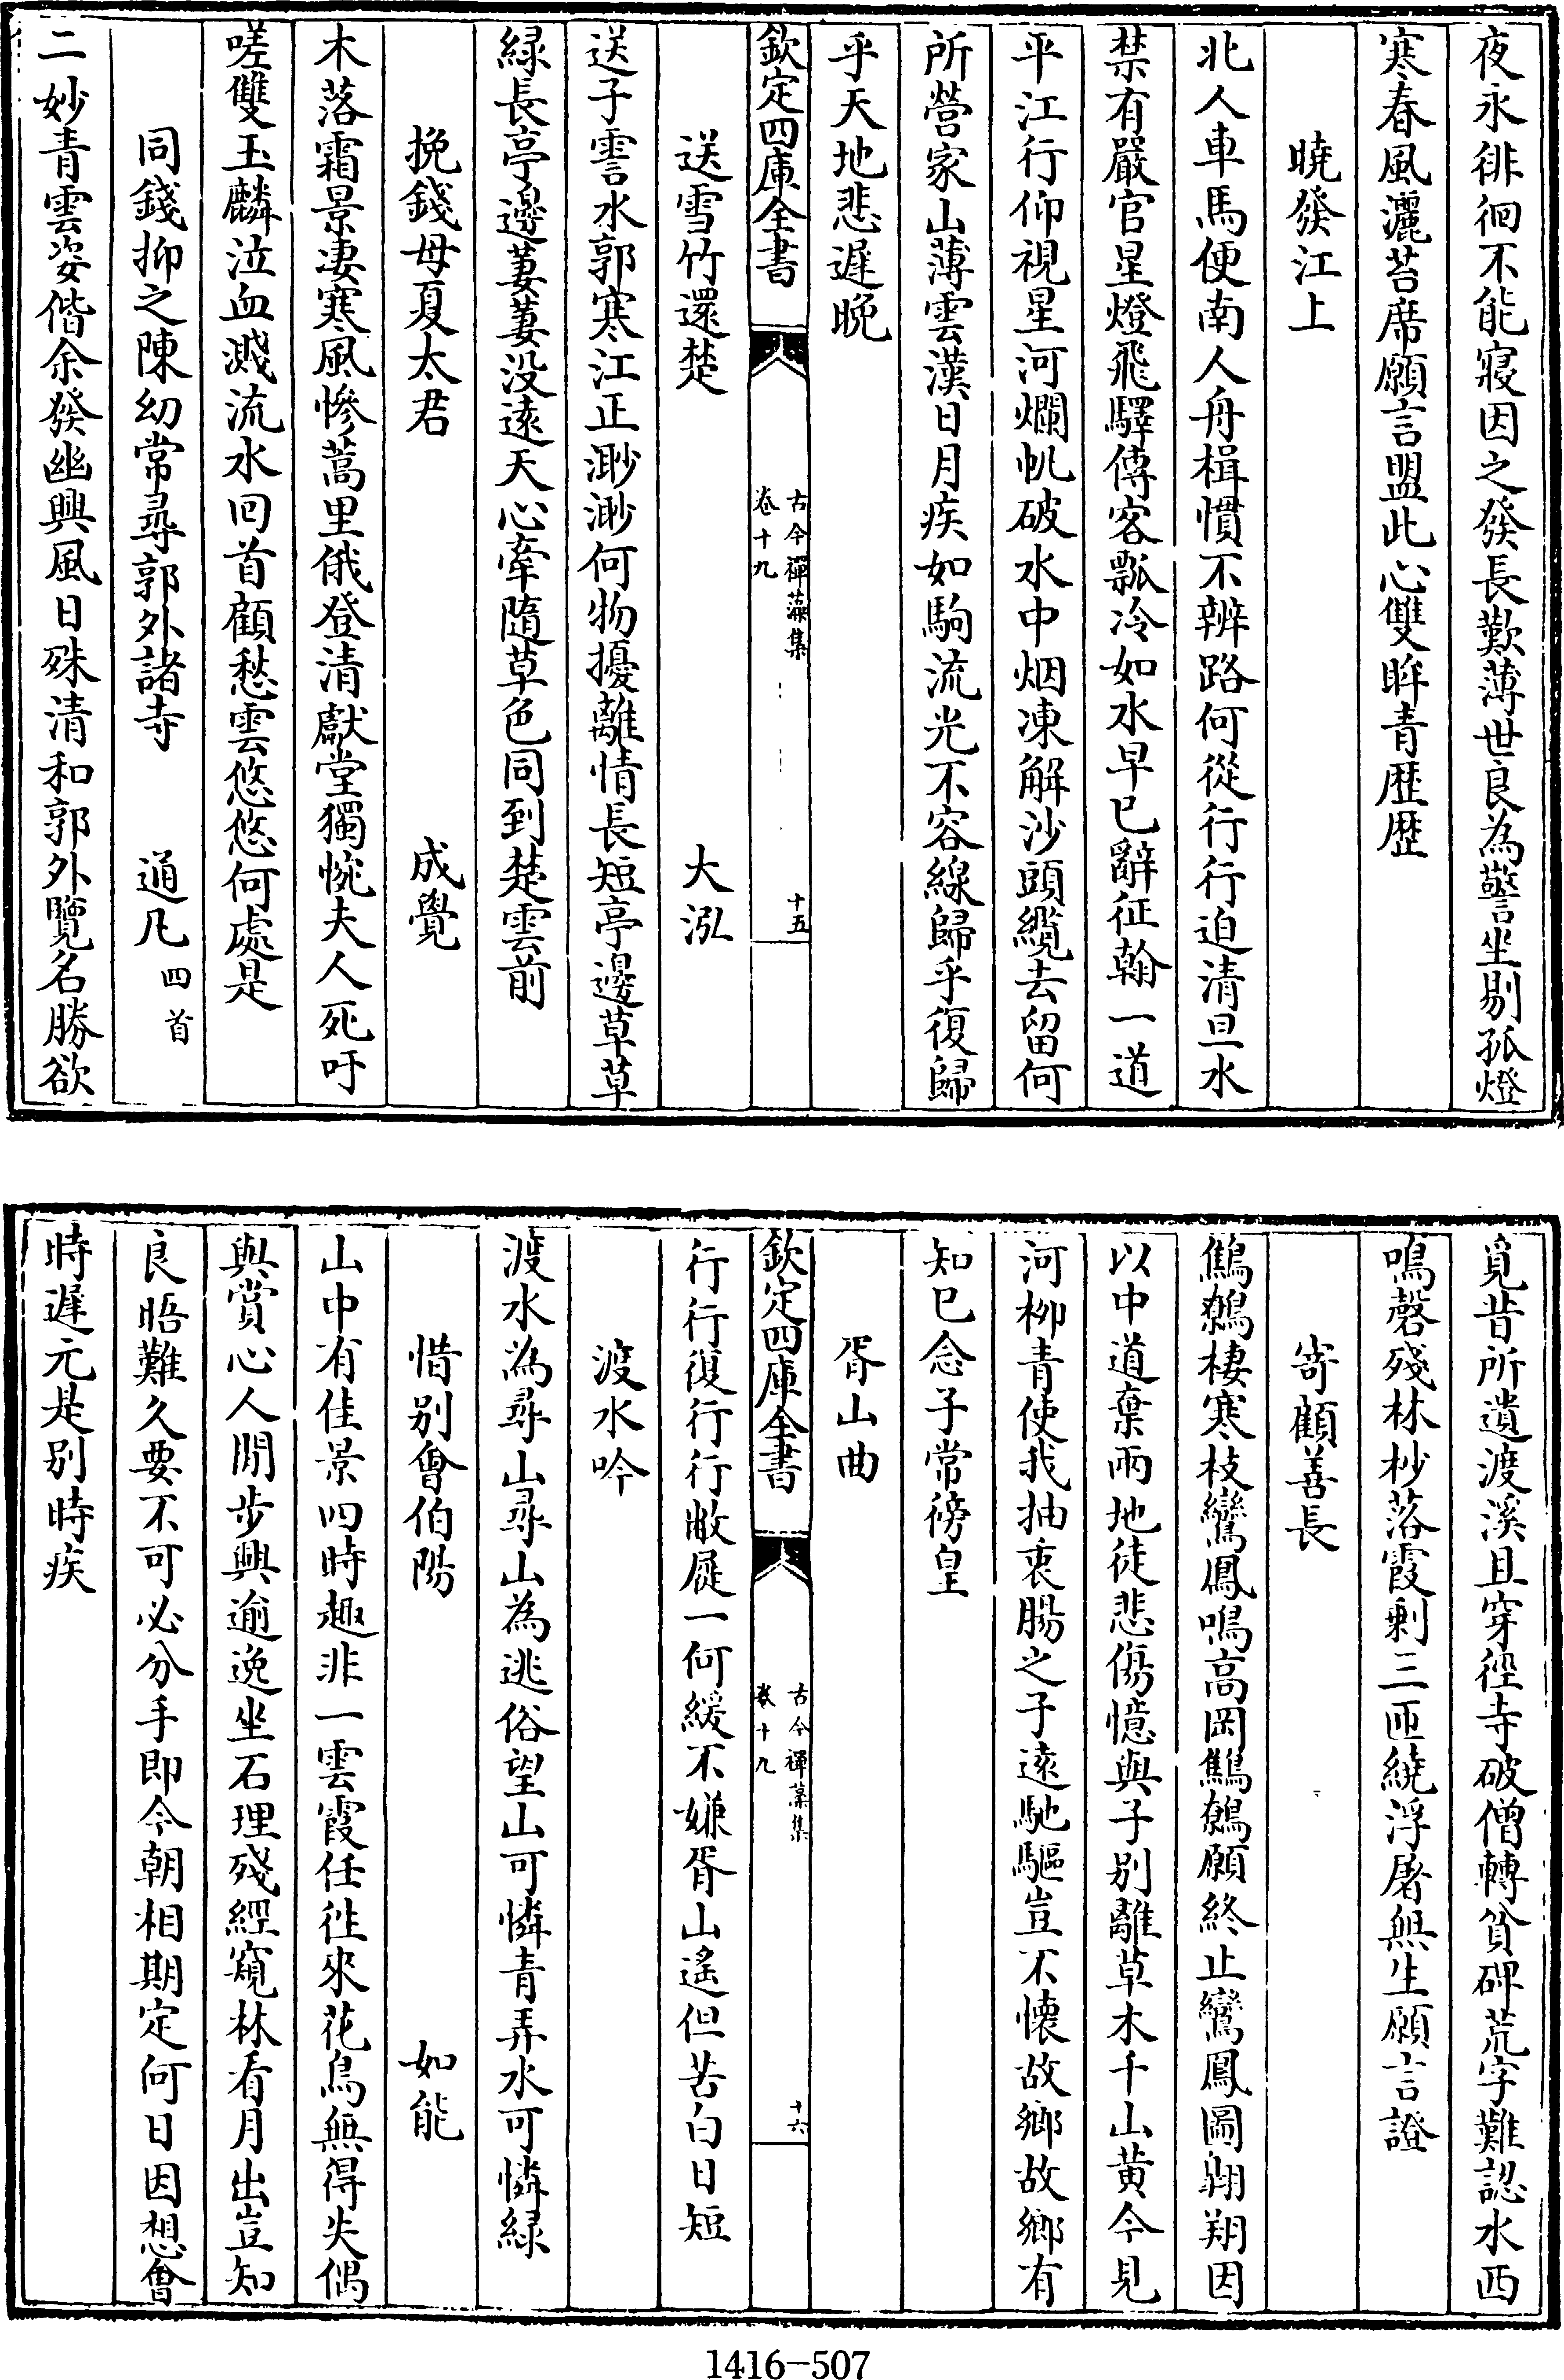 夜永徘徊不能寢因之發長歎薄世良為警坐剔孤燈
寒春風灑苔席願言盟此心雙眸青歴歴
曉發江上
北人車馬便南人舟楫慣不辨路何從行行迫清旦水
禁有嚴官星燈飛驛傳客瓢冷如水早已辭征翰一道
平江行仰視星河爛帆破水中烟凍解沙頭纜去留何
所營家山薄雲漢日月疾如駒流光不容線歸乎復歸
乎天地悲遲晚
欽定四庫全書
古今禪藻集
卷十九
十五
送雪竹還楚
大泓
送子雲水郭寒江正渺渺何物擾離情長短亭邊草草
緑長亭邊萋萋没遠天心牽隨草色同到楚雲前
挽錢母夏太君
成覺
木落霜景凄寒風惨蒿里俄登清獻堂獨惋夫人死吁
嗟雙玉麟泣血濺流水回首顧愁雲悠悠何處是
同錢抑之陳幼常尋郭外諸寺
通凡四首
二妙青雲姿偕余發幽興風日殊清和郭外覽名勝欲
覓昔所遺渡溪且穿徑寺破僧轉貧碑荒字難認水西
鳴磬殘林杪落霞剰三匝繞浮屠無生願言證
寄顧善長
鷦鷯棲寒枝鸞鳳鳴高岡鷦鷯願終止鸞鳳圖翺翔因
以中道棄兩地徒悲傷憶與子别離草木千山黄今見
河柳青使我抽衷腸之子遠馳驅豈不懐故鄉故鄉有
知已念子常徬皇
胥山曲
欽定四庫全書
古今禪藻集
卷十九
十六
行行復行行敝屣一何緩不嫌胥山遙但苦白日短
渡水吟
渡水為尋山尋山為逃俗望山可憐青弄水可憐緑
惜别會伯陽
如能
山中有佳景四時趣非一雲霞任徃來花鳥無得失偶
與賞心人閒步興逾逸坐石理殘經窺林看月出豈知
良晤難久要不可必分手即今朝相期定何日因想會
時遲元是别時疾
1416-507